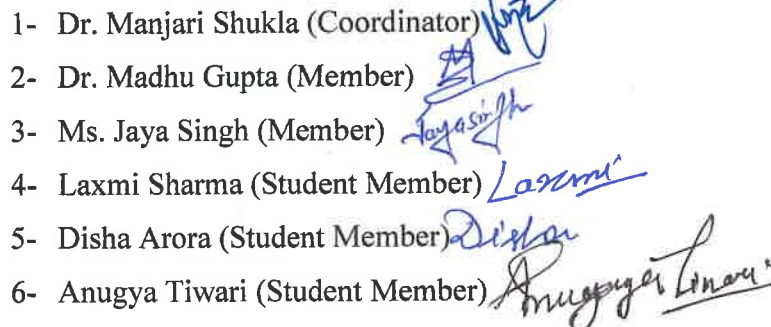 1- Dr. Manjari Shukla (Coordinator)
2- Dr. Madhu Gupta (Member)
3- Ms. Jaya Singh (Member) Jayasingh
4- Laxmi Sharma (Student Member) Laxmi
5- Disha Arora (Student Member) Disha
6- Anugya Tiwari (Student Member) Anugya Tiwari